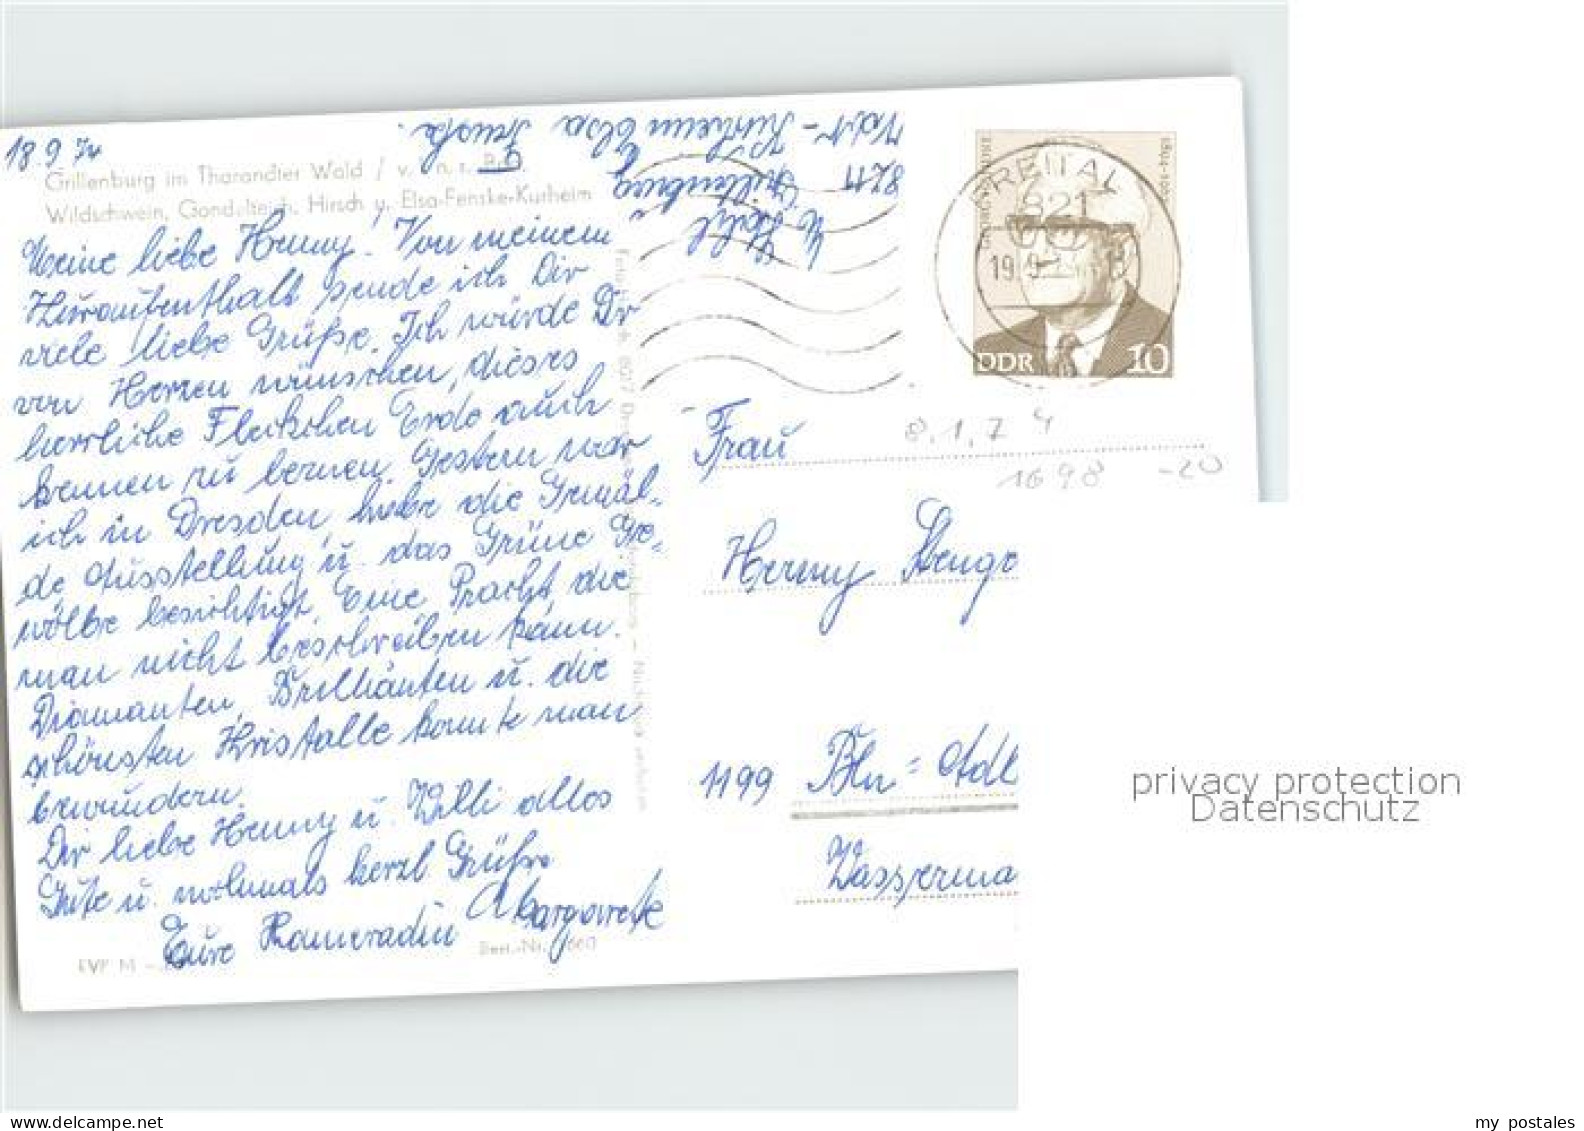 18.9.74
Grillenburg im Tharandter Wald / v. l. n. r.
Wildschwein, Gondelteich, Hirsch u. Elsa-Fenske-Kurheim
Meine liebe Henny! Von meinem
Kuraufenthalt sende ich Dir
viele liebe Grüße. Ich würde Dir
von Herzen wünschen, dieses
herrliche Fleckchen Erde auch
kennen zu lernen. Gestern war
ich in Dresden, habe die Gemäl-
de Ausstellung u. das Grüne Ge-
wölbe besichtigt. Eine Pracht die
man nicht beschreiben kann.
Diamanten, Brillianten u. die
schönsten Kristalle konnte man
bewundern.
Dir liebe Henny u. Willi alles
Gute u. nochmals herzl Grüße
Eure Kameradin Margarete
EVP M
Best.-Nr.
8211 Grillenburg
Kurheim Elsa Fenske
FREITAL
821
19.9.
DDR 10
8.1.74
1698 -20
Frau
Henny Stenge
1199 Bln-Adl
Wasserma
privacy protection
Datenschutz
my postales